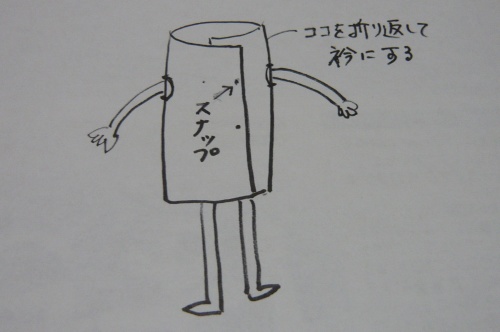 ココを折り返して
衿にする
スナップ